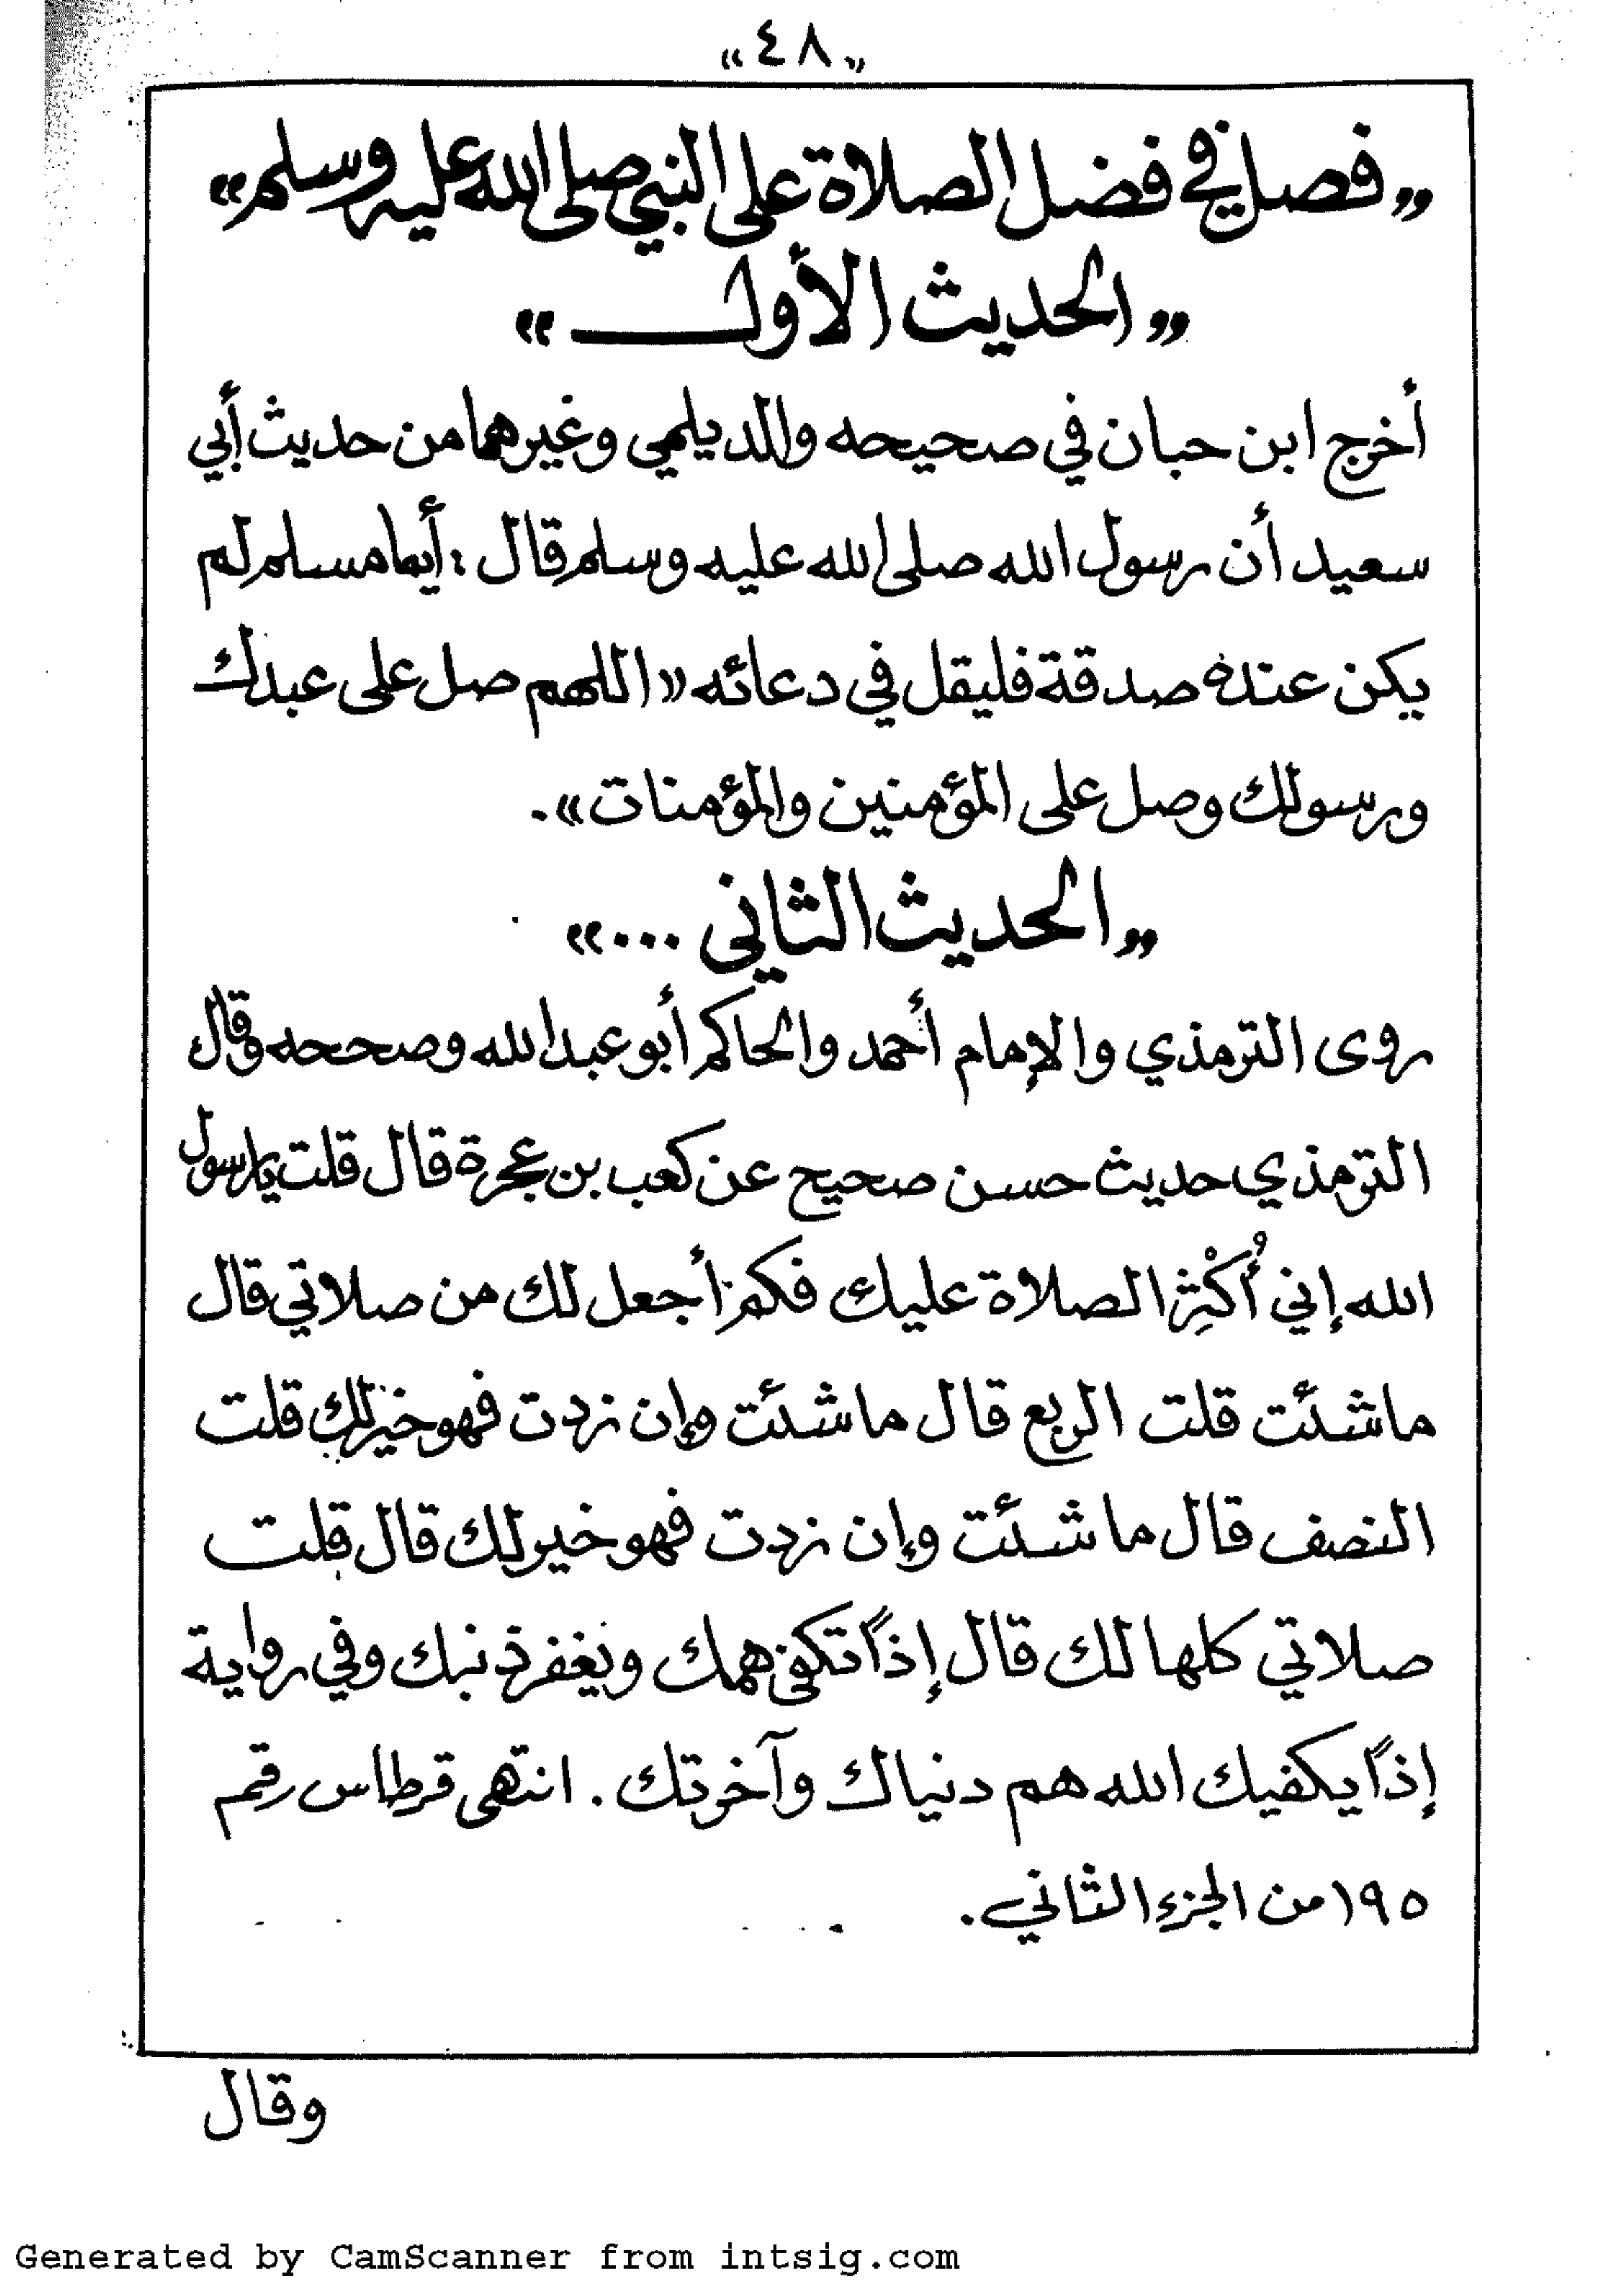 «٤٨»
«فصل في فضل الصلاة على النبي صلى الله عليه وسلم»
«الحديث الأول»
أخرج ابن حبان في صحيحه والديلمي وغيرهما من حديث أبي
سعيد أن رسول الله صلى الله عليه وسلم قال : أيما مسلم لم
يكن عنده صدقة فليقل في دعائه «اللهم صل على عبدك
ورسولك وصل على المؤمنين والمؤمنات».
«الحديث الثاني ...»
روى الترمذي والإمام أحمد والحاكم أبو عبد الله وصححه وقال
الترمذي حديث حسن صحيح عن كعب بن عجرة قال قلت يا رسول
الله إني أُكْثِرُ الصلاة عليك فكم أجعل لك من صلاتي قال
ما شئت قلت الربع قال ما شئت وإن زدت فهو خير لك قلت
النصف قال ما شئت وإن زدت فهو خير لك قال قلت
صلاتي كلها لك قال إذاً تكفى همك ويغفر ذنبك وفي رواية
إذاً يكفيك الله هم دنياك وآخرتك . انتهى قرطاس رقم
١٩٥ من الجزء الثاني .
وقال
Generated by CamScanner from intsig.com